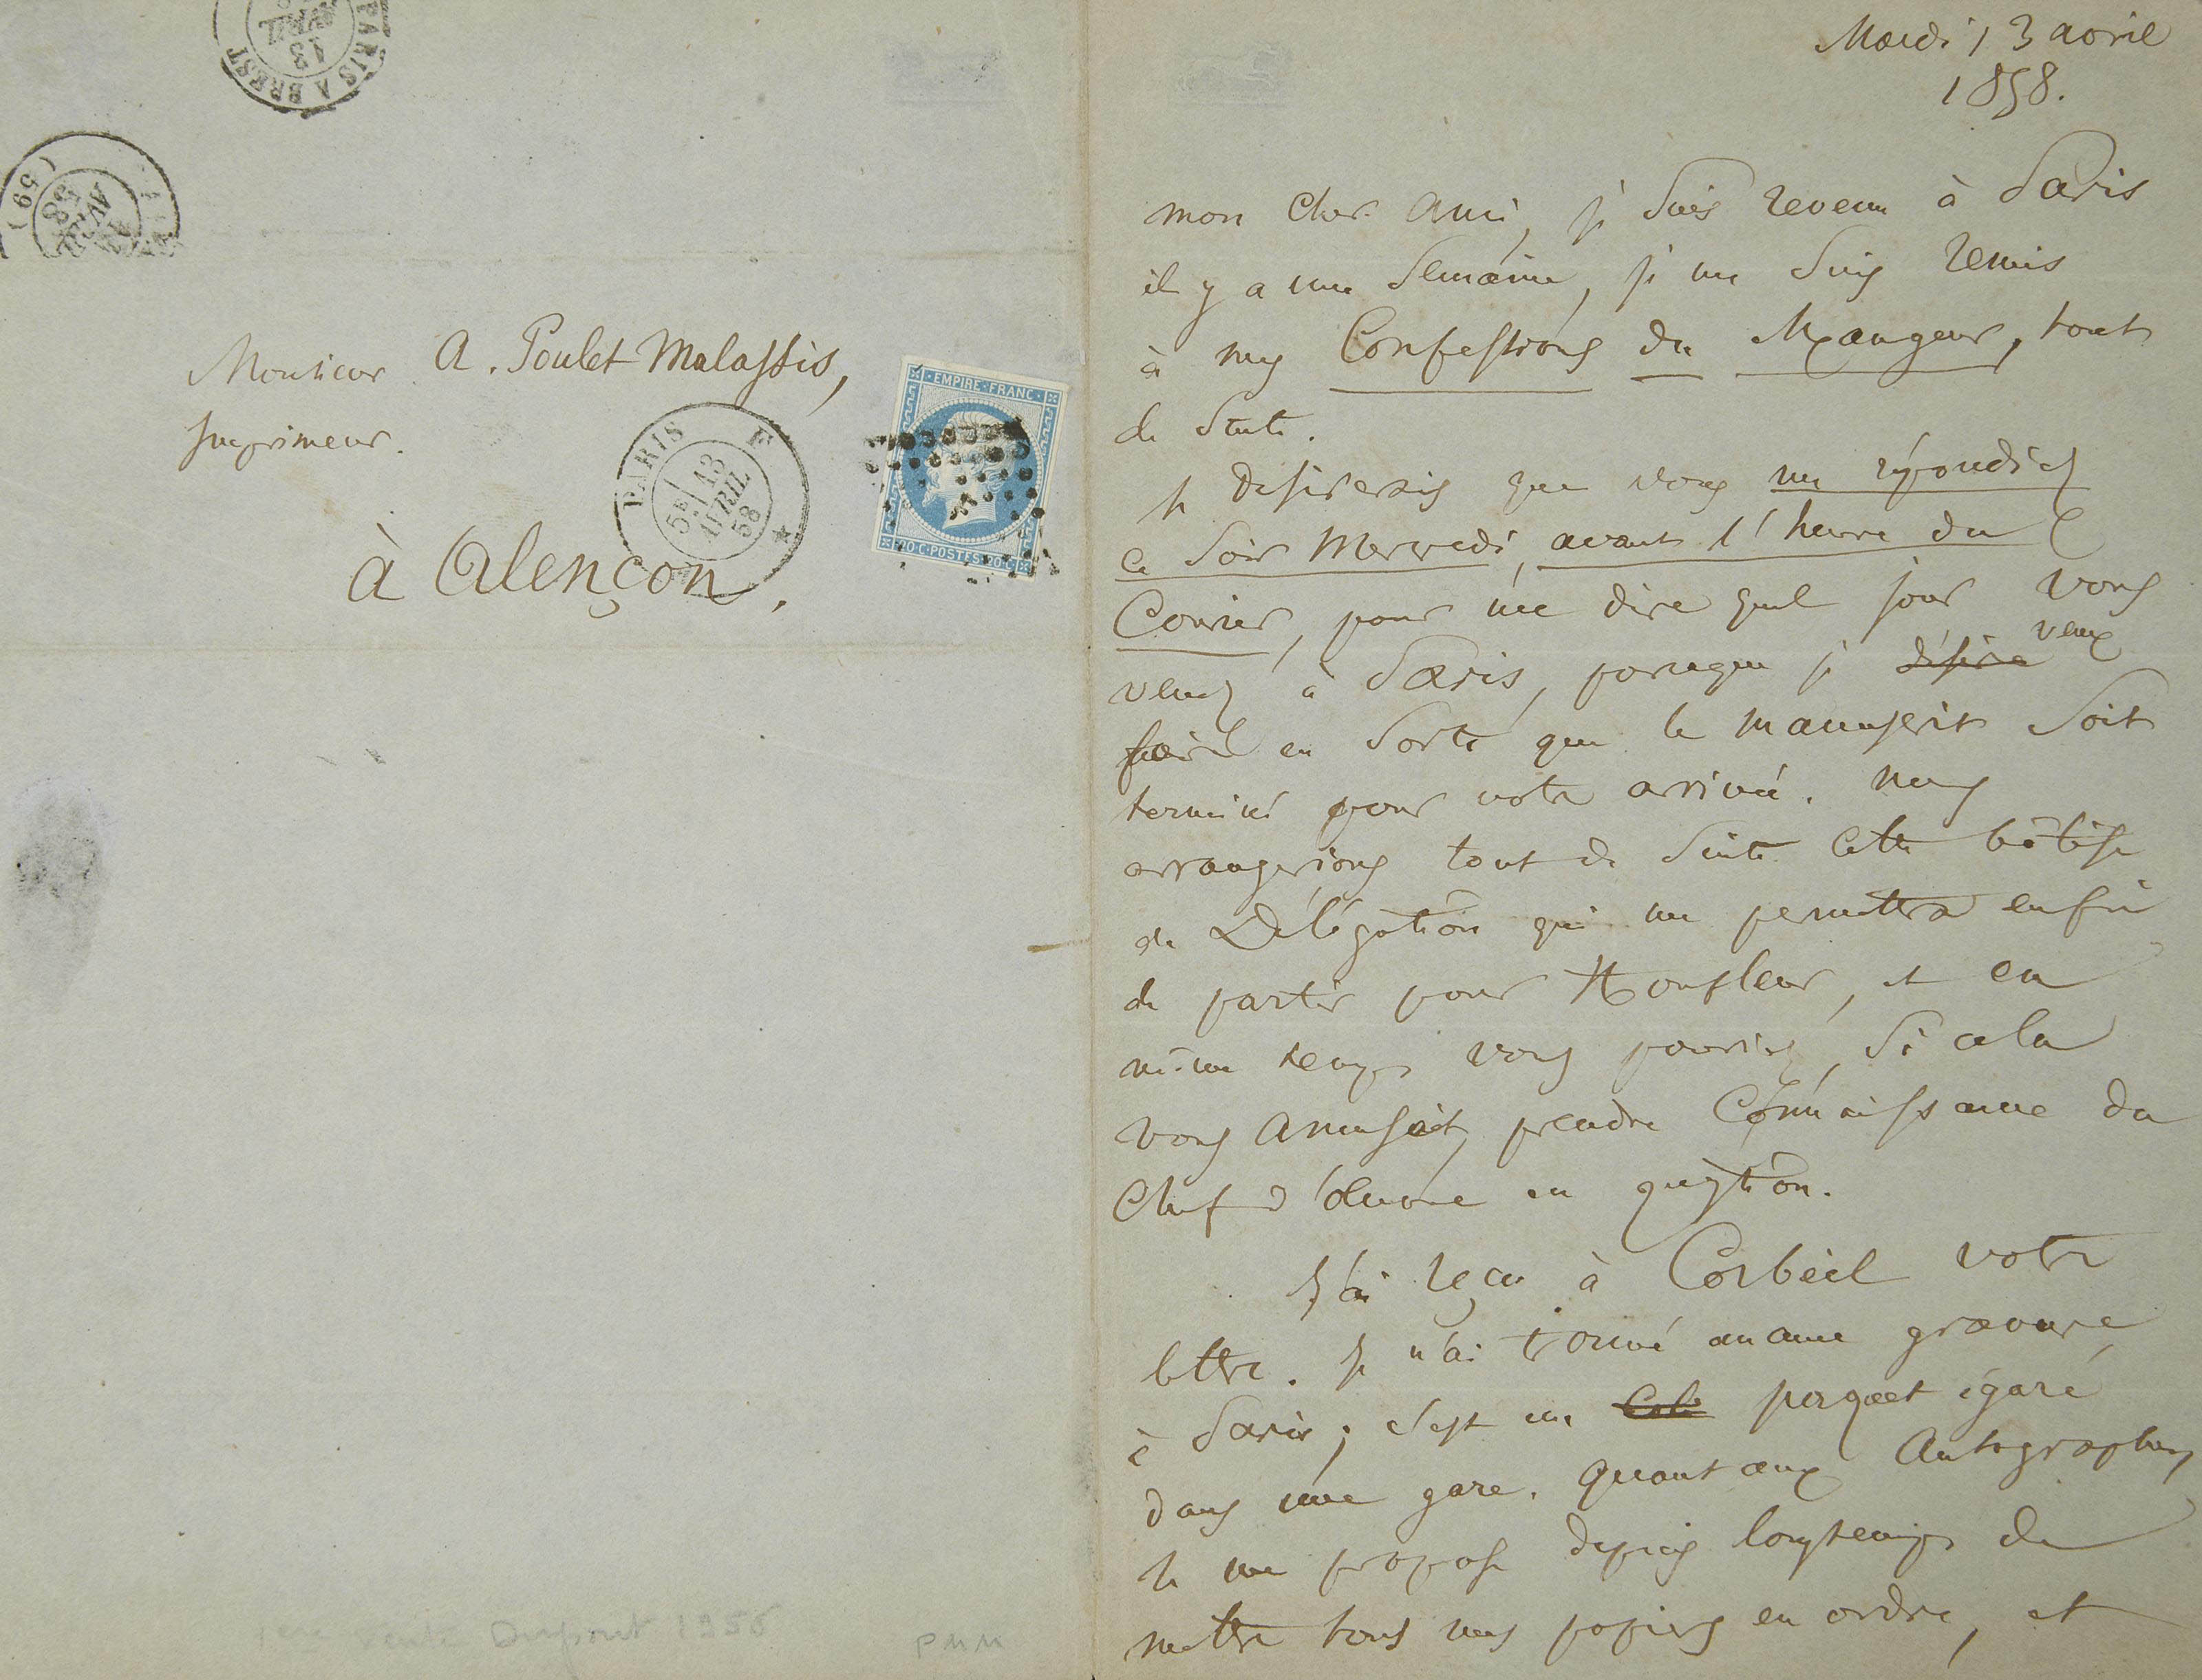 PARIS A BREST
13
AVRIL
(59)
AVRIL
58
Monsieur A. Poulet Malassis,
Imprimeur.
à Alençon.
PARIS E
5E 13
AVRIL
58
EMPIRE FRANC
20 C. POSTES 20 C.
1ere vente Dupont 1956
PMM
Mardi 13 avril
1858.
mon cher ami, je suis revenu à Paris
il y a une semaine, je me suis remis
à mes Confessions du Mangeur, tout
de suite.
Je desirerais que vous me répondiez
ce soir Mercredi, avant l'heure du
Courier, pour me dire quel jour vous
venez à Paris, parceque je désire veux
faire en sorte que le manuscrit soit
terminé pour votre arrivée. Nous
arrangerions tout de suite cette bêtise
de Délégation qui me permettra enfin
de partir pour Honfleur, et en
même temps vous pourriez, si cela
vous amusait, prendre connaissance du
Chef d'œuvre en question.
J'ai reçu à Corbeil votre
lettre. Je n'ai trouvé aucune gravure
à Paris ; c'est un paquet égaré
dans une gare. Quant aux Autographes,
je me propose depuis longtemps de
mettre tous mes papiers en ordre, et